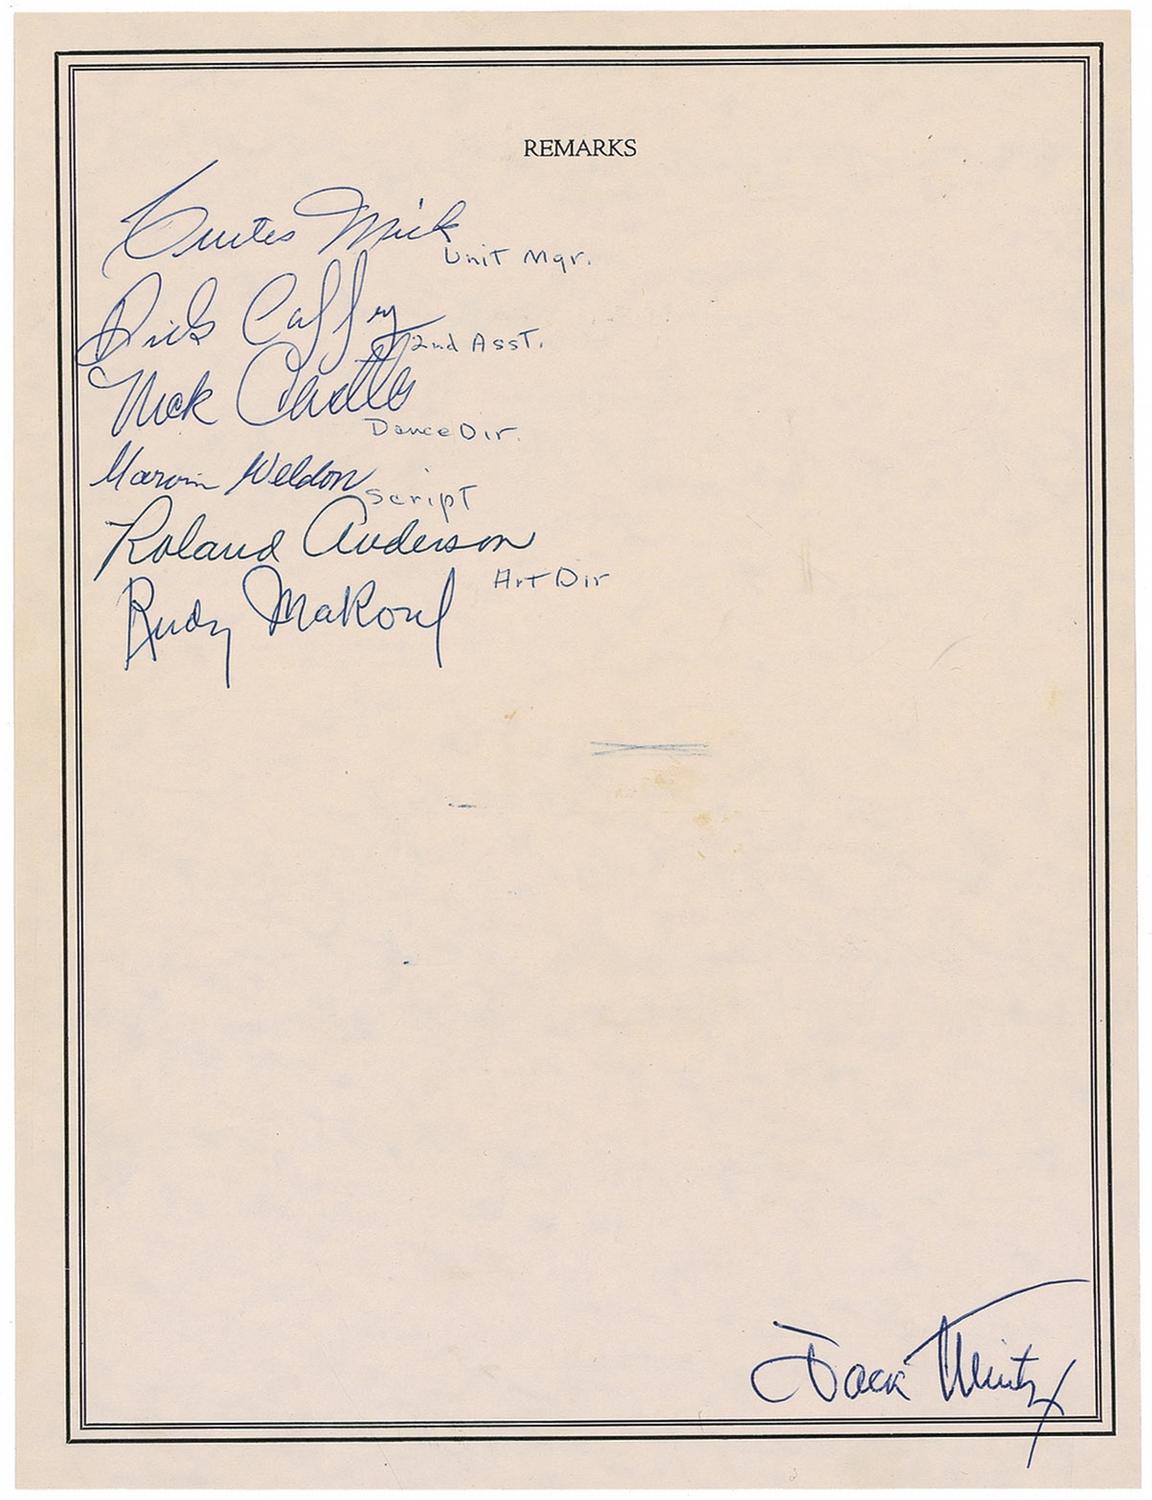 REMARKS
Curtis Mick
Unit Mgr.
Rick Caffey
2nd Asst.
Nick
Dance Dir.
Marvin Weldon
Script
Roland Anderson
Art Dir
Rudy Makoul
Jack Mintz